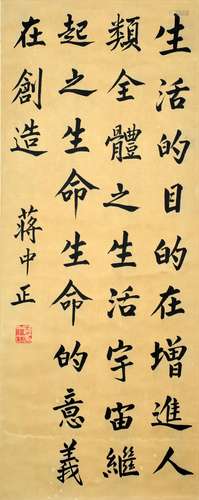 生活的目的在增進人
類全體之生活宇宙繼
起之生命生命的意義
在創造
蔣中正